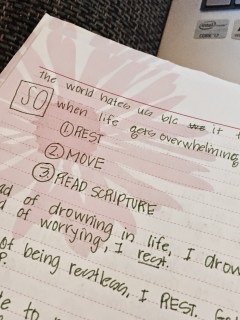 The world hates us b/c it
SO when life gets overwhelming
① REST
② MOVE
③ READ SCRIPTURE
of drowning in life, I
of worrying, I rest.
of being restless, I REST.